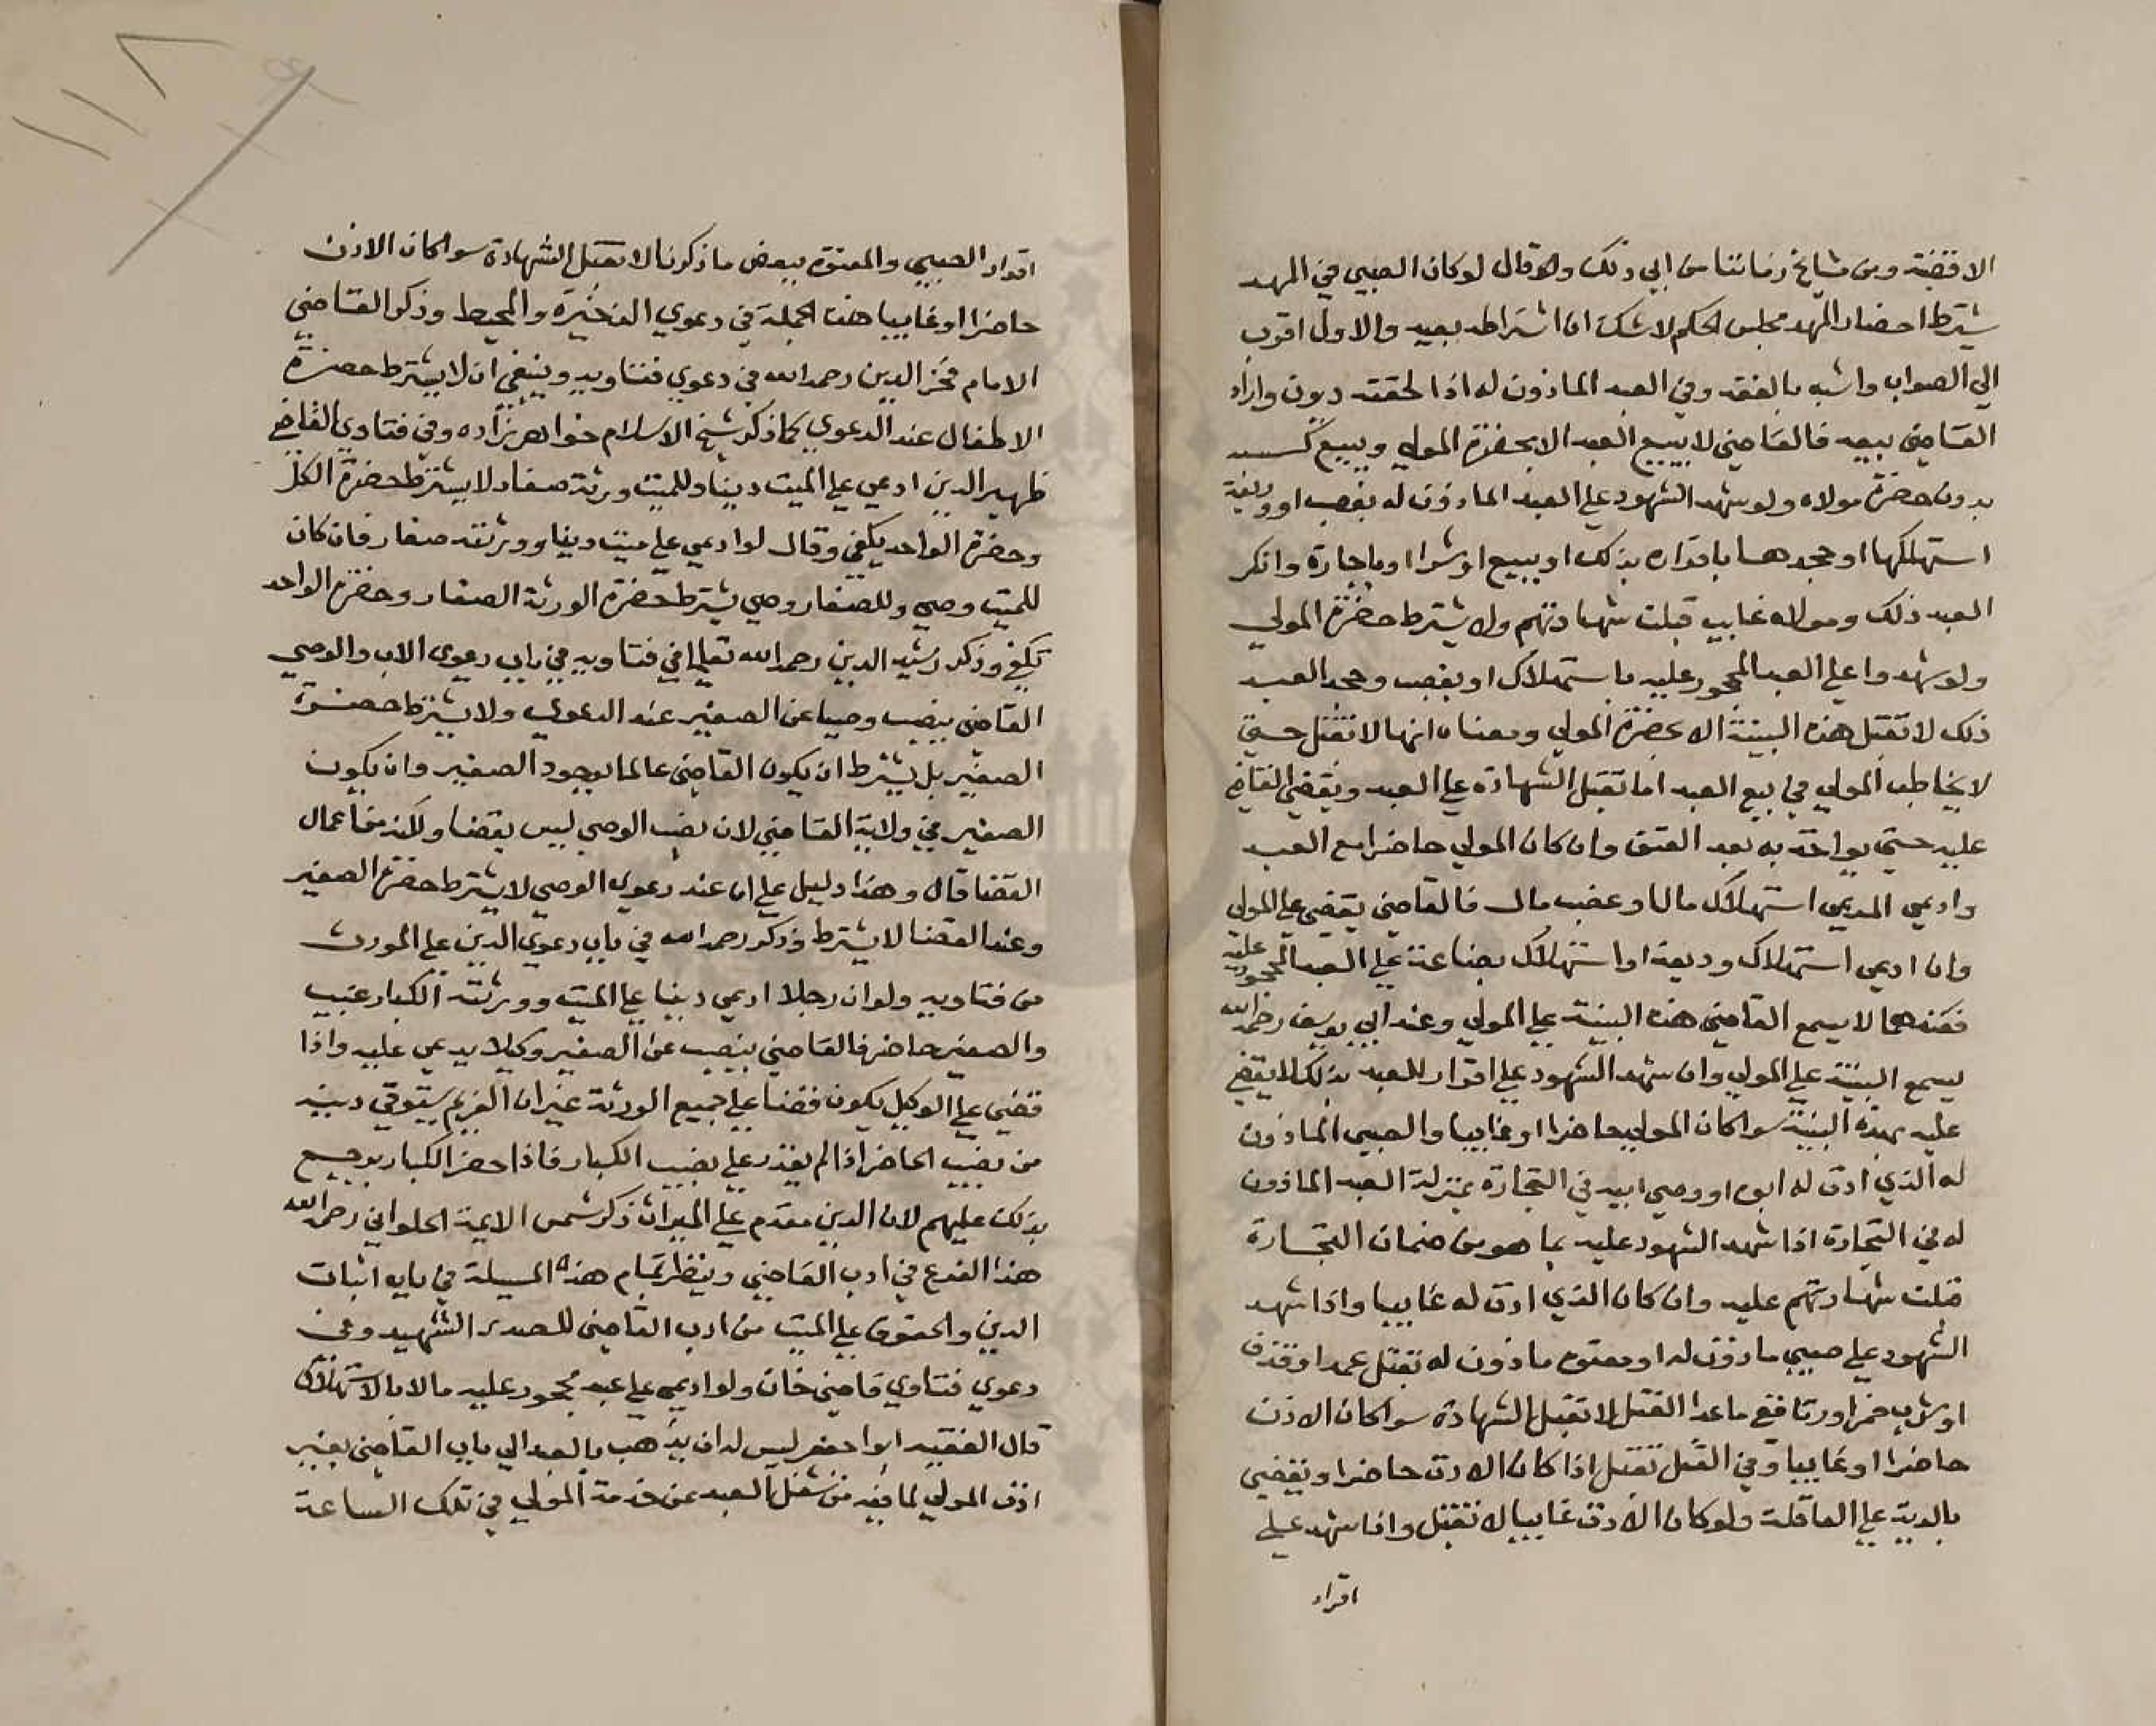 الاقضية ومن مشايخ زماننا من ابي ذلك وقال لو كان الصبي في المهد
يشترط احضار المهد مجلس الحكم لا شك ان اشتراطه بعيد والاول اقرب
الي الصواب واشبه بالفقه وفي العبد الماذون له اذا لحقته ديون واراد
القاضي بيعه فالقاضي لا يبيع العبد الا بحضرة المولي ويبيع كسبه
بدون حضرة مولاه ولو شهد الشهود علي العبد الماذون له بغصب او وديعة
استهلكها او جحدها باقراره بذلك او ببيع او شرا او باجارة وانكر
العبد ذلك ومولاه غايب قبلت شهادتهم ولا يشترط حضرة المولي
ولو شهدوا علي العبد المحجور عليه باستهلاك او بغصب وجحد العبد
ذلك لا تقبل هذه البينة الا بحضرة المولي ومعناه انها لا تقبل حتي
لا يخاطب المولي في بيع العبد اما تقبل الشهادة علي العبد ويقضي القاضي
عليه حتي يواخذ به بعد العتق وان كان المولي حاضرا مع العبد
وادعي المدعي استهلاك مال او غصب مال فالقاضي يقضي علي المولي
وان ادعي استهلاك وديعة او استهلاك بضاعة علي العبد المحجور عليه
فعندهما لا يسمع القاضي هذه البينة علي المولي وعند ابي يوسف رحمه الله
يسمع البينة علي المولي وان شهد الشهود علي اقرار العبد بذلك لا يقضي
عليه بهذه البينة سوا كان المولي حاضرا او غايبا والصبي الماذون
له الذي اذن له ابوه او وصي ابيه في التجارة بمنزلة العبد الماذون
له في التجارة اذا شهد الشهود عليه بما هو من ضمان التجارة
قبلت شهادتهم عليه وان كان الذي اذن له غايبا واذا شهد
الشهود علي صبي ماذون له او معتوه ماذون له بقتل عمد او قذف
او شرب خمر او زنا ففي ما عدا القتل لا تقبل الشهادة سوا كان الاذن
حاضرا او غايبا وفي القتل تقبل اذا كان الاذن حاضرا ويقضي
بالدية علي العاقلة ولو كان الاذن غايبا لا تقبل واذا شهد علي
اقرار
اقرار الصبي والمعتوه ببعض ما ذكرنا لا تقبل الشهادة سوا كان الاذن
حاضرا او غايبا هذه الجملة في دعوي الذخيرة والمحيط وذكر القاضي
الامام فخر الدين رحمه الله في دعوي فتاويه وينبغي ان لا يشترط حضرة
الاطفال عند الدعوي كما ذكر شيخ الاسلام خواهر زاده وفي فتاوي القاضي
ظهير الدين ادعي علي الميت دينا وللميت ورثة صغار لا يشترط حضرة الكل
وحضرة الواحد يكفي وقال لو ادعي علي ميت دينا وورثته صغار فان كان
للميت وصي وللصغار وصي يشترط حضرة الورثة الصغار وحضرة الواحد
تكفي وذكر رشيد الدين رحمه الله تعالي في فتاويه في باب دعوي الاب والوصي
القاضي ينصب وصيا عن الصغير عند الدعوي ولا يشترط حضرة
الصغير بل يشترط ان يكون القاضي عالما بوجود الصغير وان يكون
الصغير في ولاية القاضي لان نصب الوصي ليس بقضا ولكنه من اعمال
القضا قال وهذا دليل علي ان عند دعوي الوصي لا يشترط حضرة الصغير
وعند القضا لا يشترط وذكر رحمه الله في باب دعوي الدين علي المورث
من فتاويه ولو ان رجلا ادعي دينا علي الميت وورثته الكبار غيب
والصغير حاضر فالقاضي ينصب عن الصغير وكيلا يدعي عليه واذا
قضي علي الوكيل يكون قضا علي جميع الورثة غير ان الغريم يستوفي دينه
من نصيب الحاضر اذا لم يقدر علي نصيب الكبار فاذا حضر الكبار يرجع
بذلك عليهم لان الدين مقدم علي الميراث ذكر شمس الايمة الحلواني رحمه الله
هذا الفرع في ادب القاضي وينظر تمام هذه المسيلة في باب اثبات
الدين والحقوق علي الميت من ادب القاضي للصدر الشهيد وفي
دعوي فتاوي قاضي خان ولو ادعي علي عبد محجور عليه مالا بالاستهلاك
قال الفقيه ابو جعفر ليس له ان يذهب بالعبد الي باب القاضي بغير
اذن المولي لما فيه من شغل العبد عن خدمة المولي في تلك الساعة
١١٨